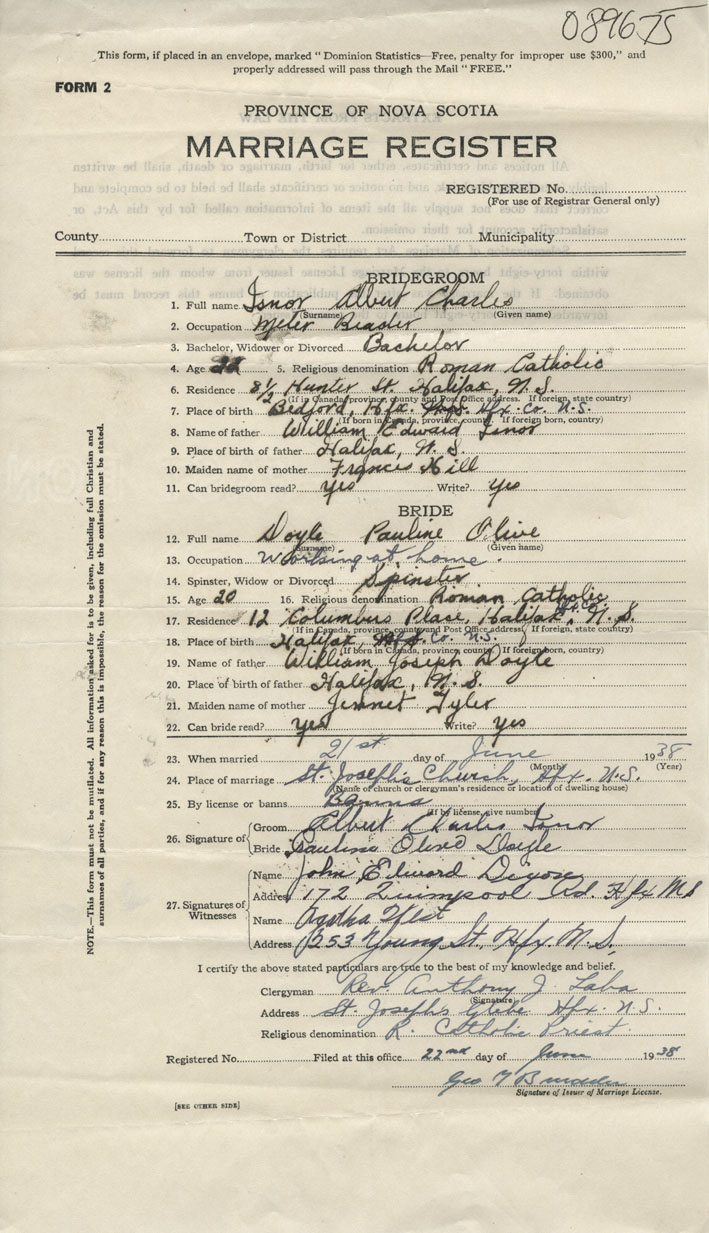 089675
This form, if placed in an envelope, marked "Dominion Statistics—Free, penalty for improper use $300," and
properly addressed will pass through the Mail "FREE."
FORM 2
PROVINCE OF NOVA SCOTIA
MARRIAGE REGISTER
REGISTERED No.
(For use of Registrar General only)
County Town or District Municipality
BRIDEGROOM
1. Full name Isnor Albert Charles
(Surname) (Given name)
2. Occupation Meter Reader
3. Bachelor, Widower or Divorced Bachelor
4. Age 5. Religious denomination Roman Catholic
6. Residence 8½ Hunter St. Halifax, N.S.
(If in Canada, province, county and Post Office address. If foreign, state country)
7. Place of birth Bedford, Hfx. Hfx. Co. N.S.
(If born in Canada, province, county. If foreign born, country)
8. Name of father William Edward Isnor
9. Place of birth of father Halifax, N.S.
10. Maiden name of mother Frances Hill
11. Can bridegroom read? yes Write? yes
BRIDE
12. Full name Doyle Pauline Olive
(Surname) (Given name)
13. Occupation Working at home.
14. Spinster, Widow or Divorced Spinster
15. Age 20 16. Religious denomination Roman Catholic
17. Residence 12 Columbus Place, Halifax, Hfx. Co. N.S.
(If in Canada, province, county and Post Office address. If foreign, state country)
18. Place of birth Halifax, Co. N.S.
(If born in Canada, province, county. If foreign born, country)
19. Name of father William Joseph Doyle
20. Place of birth of father Halifax, N.S.
21. Maiden name of mother Jennet Tyler
22. Can bride read? yes Write? yes
23. When married 21st day of June 1938
(Month) (Year)
24. Place of marriage St. Joseph's Church, Hfx. N.S.
(Name of church or clergyman's residence or location of dwelling house)
25. By license or banns Banns
(If by license, give number)
26. Signature of
Groom Albert Charles Isnor
Bride Pauline Olive Doyle
27. Signatures of Witnesses
Name John Edward
Address 172 Quinpool Rd. Hfx N.S
Name Agatha West
Address 253 Young St. Hfx. N.S.
I certify the above stated particulars are true to the best of my knowledge and belief.
Clergyman Rev. Anthony J. Laba
(Signature)
Address St. Joseph's Glebe Hfx. N.S.
Religious denomination R. Catholic Priest
Registered No. Filed at this office 22nd day of June 1938
Geo
Signature of Issuer of Marriage License.
[SEE OTHER SIDE]
NOTE.—This form must not be mutilated. All information asked for is to be given, including full Christian and
surnames of all parties, and if for any reason this is impossible, the reason for the omission must be stated.